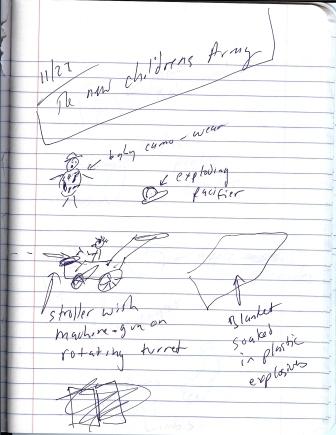 11/27
The new childrens Army
baby camo-wear
exploding
pacifier
stroller with
machine-gun on
rotating turret
Blanket
soaked
in plastic
explosives